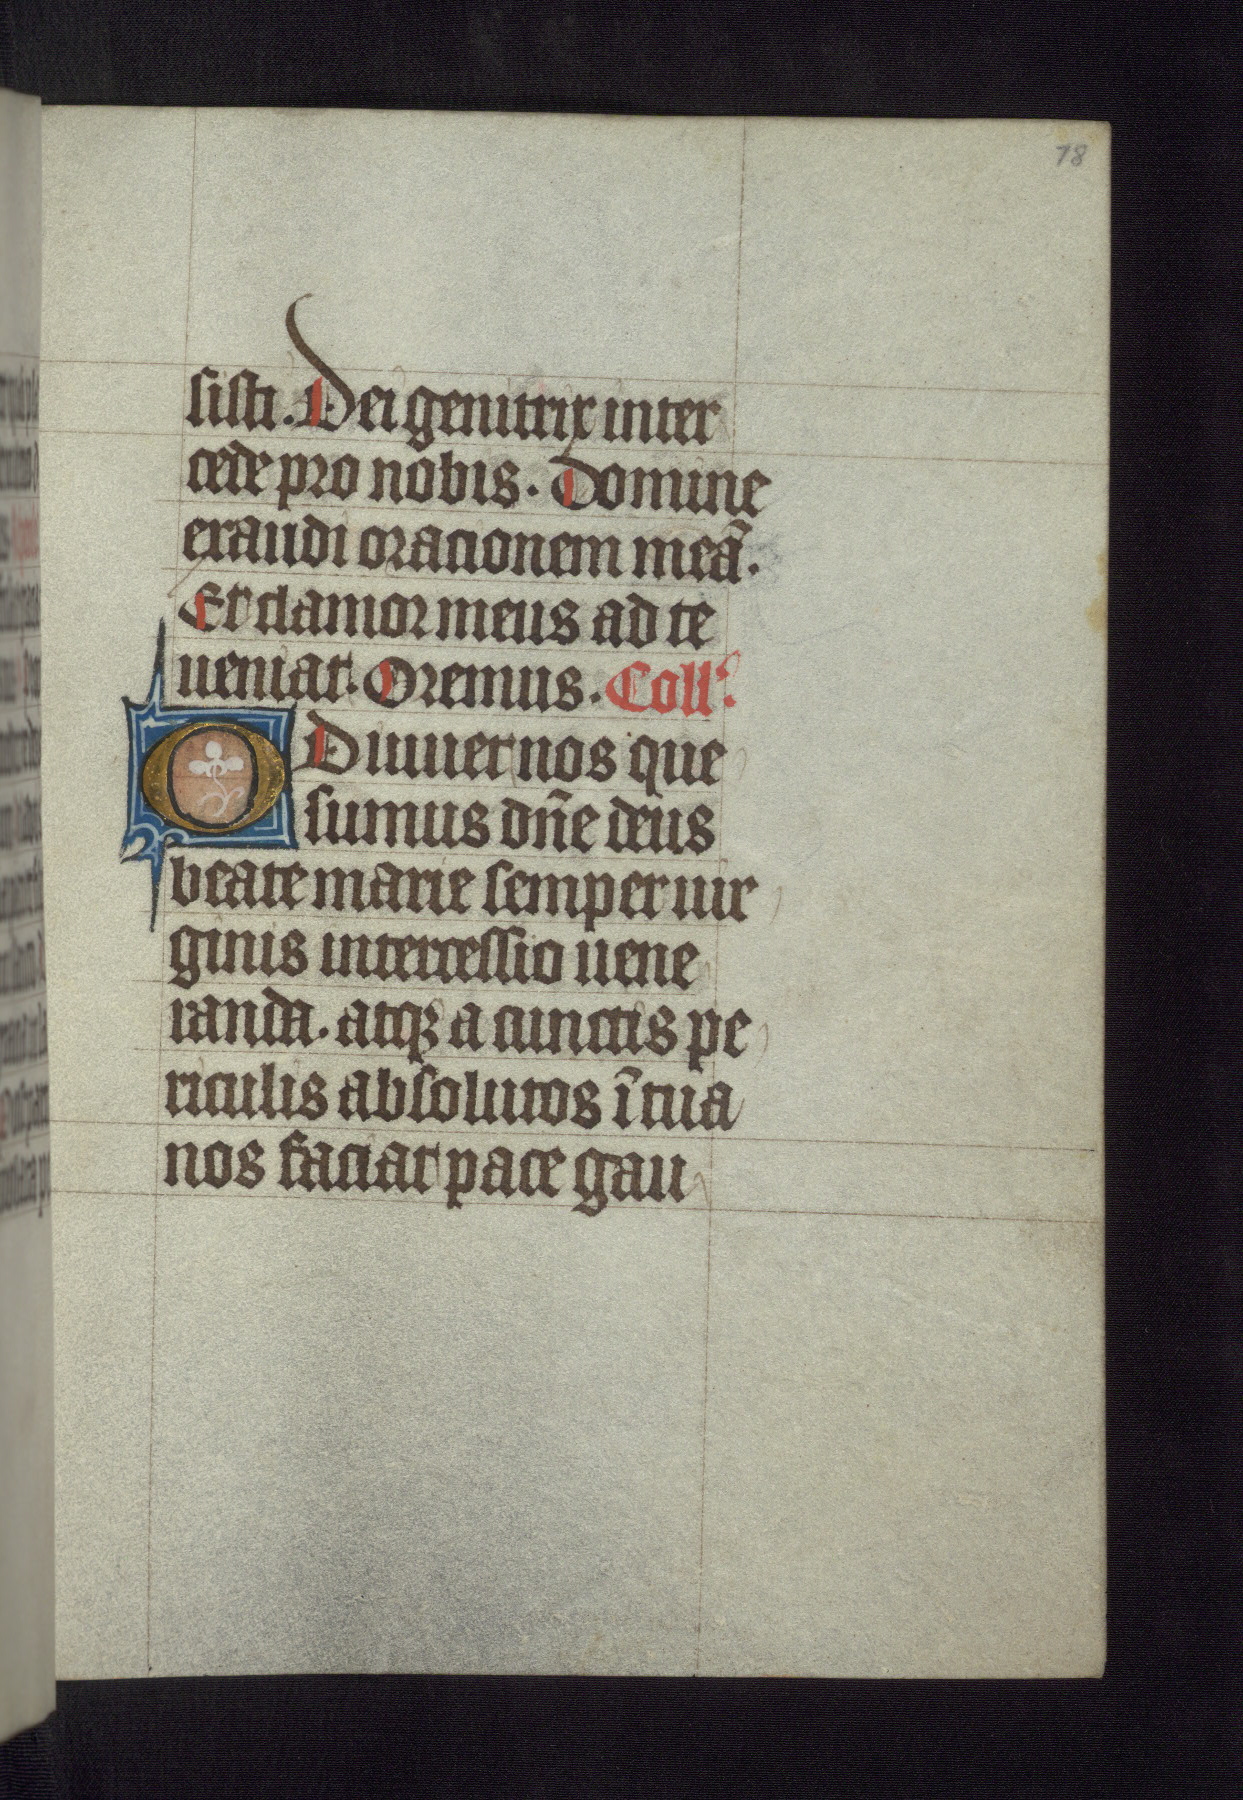 78
sisti. Dei genitrix inter
cede pro nobis. Domine
exaudi oracionem meā.
Et clamor meus ad te
ueniat. Oremus. Coll'.
ADiuuet nos que
sumus dn̄e deus
beate marie semper uir
ginis intercessio uene
randa. atqꝫ a cunctis pe
riculis absolutos ī tua
nos faciat pace gau